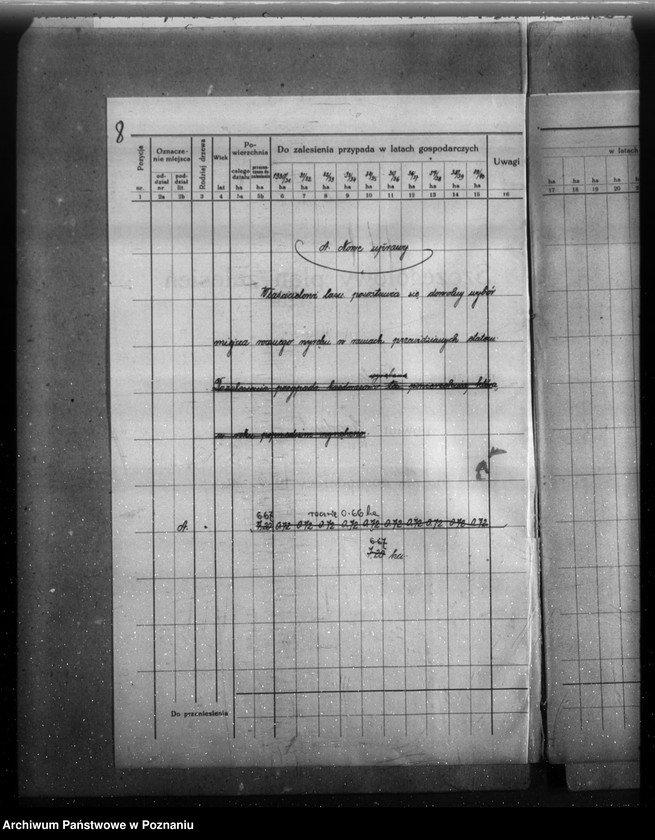 8
Pozycja
nr.
Oznaczenie miejsca
oddział nr
poddział lit
Rodzaj drzewa
Wiek
lat
Powierzchnia
całego działu ha
ha
Do zalesienia przypada w latach gospodarczych
31/32 32/33 33/34 34/35 35/36 36/37 37/38 38/39 39/40
ha ha ha ha ha ha ha ha ha ha
Uwagi
w latach
ha ha ha ha
1 2a 2b 3 4 5a 5b 6 7 8 9 10 11 12 13 14 15 16
17 18 19 20
A. Nowe uprawy
Właścicielowi lasu pozostawia się dowolny wybór
miejsca rocznego wyrębu w ramach przewidzianych etatem
Zalesienia przypada
w roku poprzednim wyrębane
6.67 rocznie 0.66 ha
A. 7.20 0.72 0.72 0.72 0.72 0.72 0.72 0.72 0.72 0.72 0.72
6.67
7.20 ha
Do przeniesienia
Archiwum Państwowe w Poznaniu